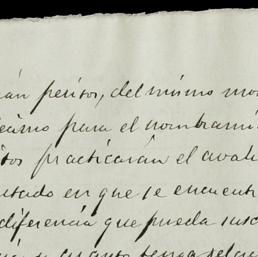 rán peritos, del mismo mo
écimo para el nombrami
itos practicarán el avalu
estado en que se encuentr
diferencia que pueda susc